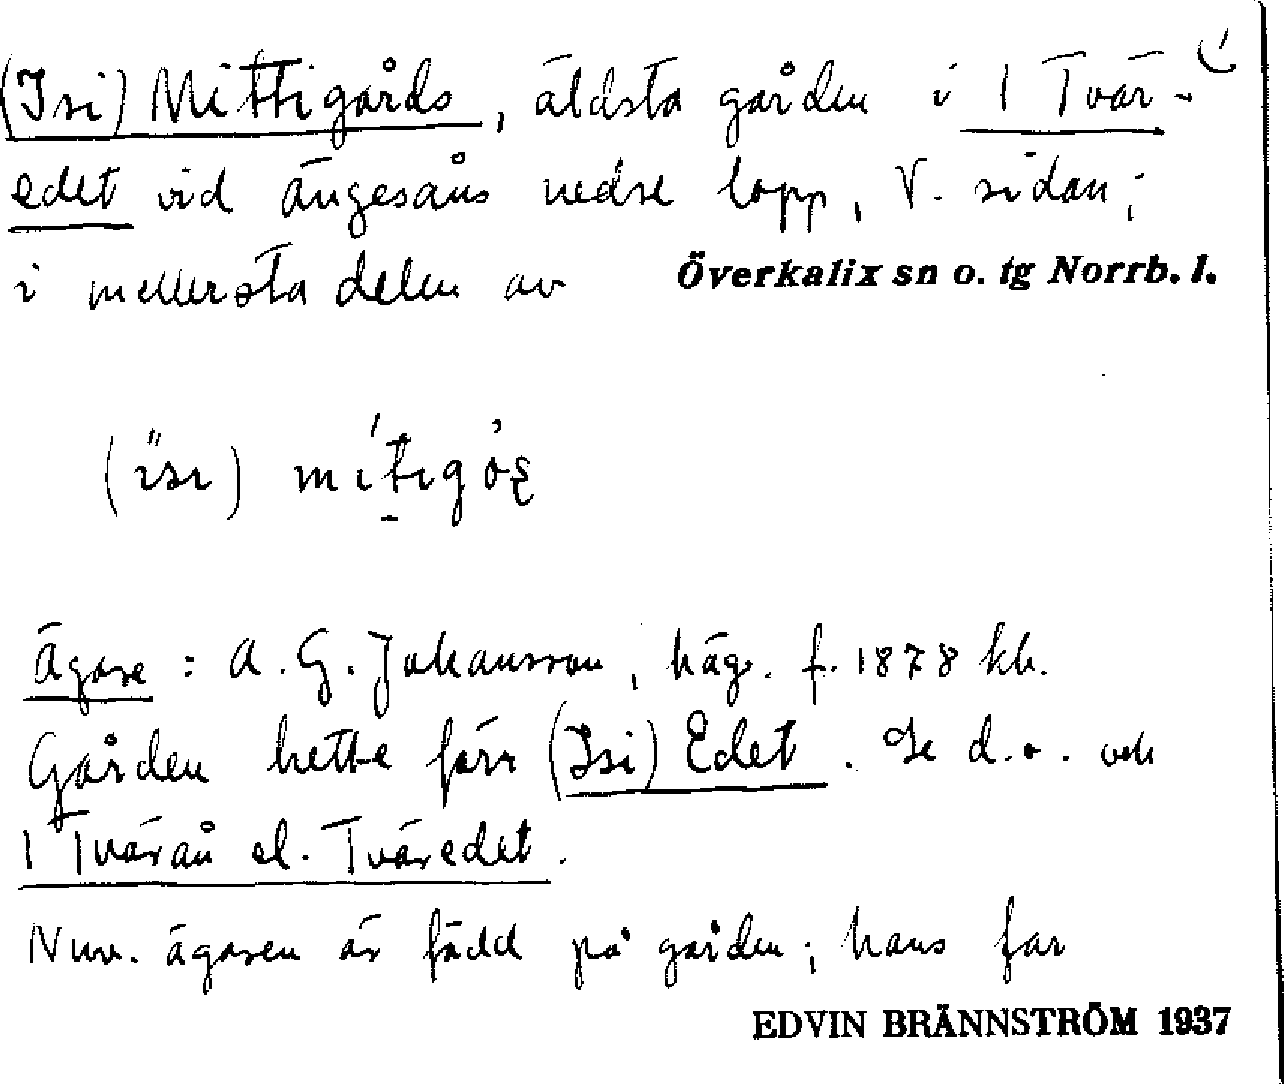 (Isi) Mittigårds, äldsta gården i I Tvär-
edet vid Ängesåns nedre lopp, V. sidan;
i mellersta delen av Överkalix sn o. tg Norrb. l.
(isi)
Ägare: A. G. Johansson, häg. f. 1878 kb.
Gården hette förr (Isi) Edet. Se d.o. och
I Tvärån el. Tväredet.
Nuv. ägaren är född på gården; hans far
EDVIN BRÄNNSTRÖM 1937